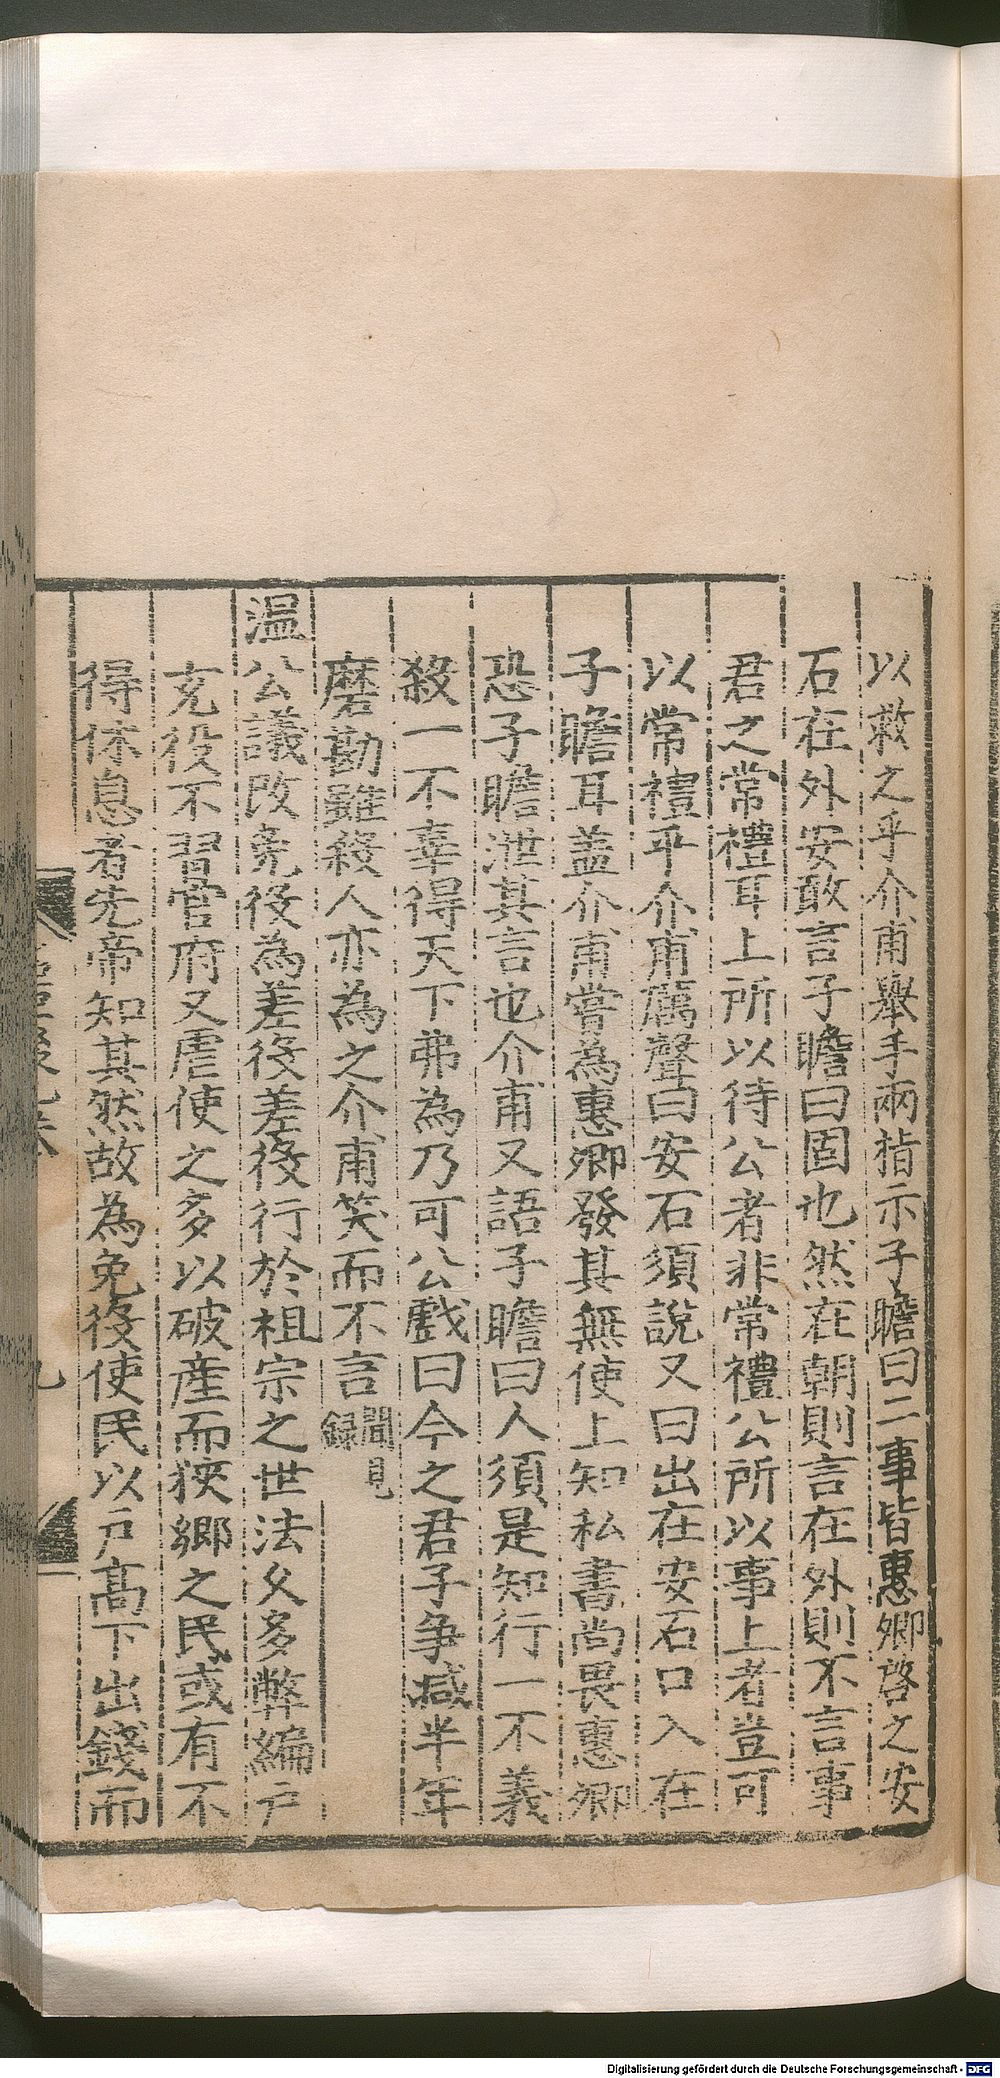 以救之乎介甫舉手兩指示子瞻曰二事皆惠卿啓之安
石在外安敢言子瞻曰固也然在朝則言在外則不言事
君之常禮耳上所以待公者非常禮公所以事上者豈可
以常禮乎介甫厲聲曰安石須說又曰出在安石口入在
子瞻耳盖介甫嘗為惠卿發其無使上知私書尚畏惠卿
恐子瞻泄其言也介甫又語子瞻曰人須是知行一不義
殺一不辜得天下弗為乃可公戲曰今之君子爭減半年
磨勘雖殺人亦為之介甫笑而不言聞見錄
温公議改免役為差役差役行於祖宗之世法久多弊編户
充役不習官府又虐使之多以破產而狹鄉之民或有不
得休息者先帝知其然故為免役使民以户高下出錢而
九
Digitalisierung gefördert durch die Deutsche Forschungsgemeinschaft - DFG